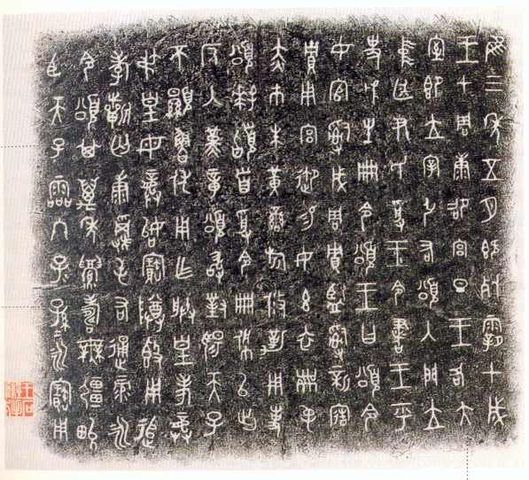 隹三年五月既死霸甲戌
王才周康卲宮旦王各大
室即立宰弘右頌入門立
中廷尹氏受王令書王乎
史虢生冊令頌王曰頌令
女官𤔲成周貯監𤔲新造
貯用宮御易女玄衣黹屯
赤巿朱黃䜌旂攸勒用事
頌拜𩒨首受令冊佩㠯出
反入堇章頌敢對揚天子
不顯魯休用乍朕皇考龏
弔皇母龏始寶尊𣪘用追
孝匄康屯右通彔永
令頌其萬年眉壽無彊畯
臣天子霝冬子孫永寶用